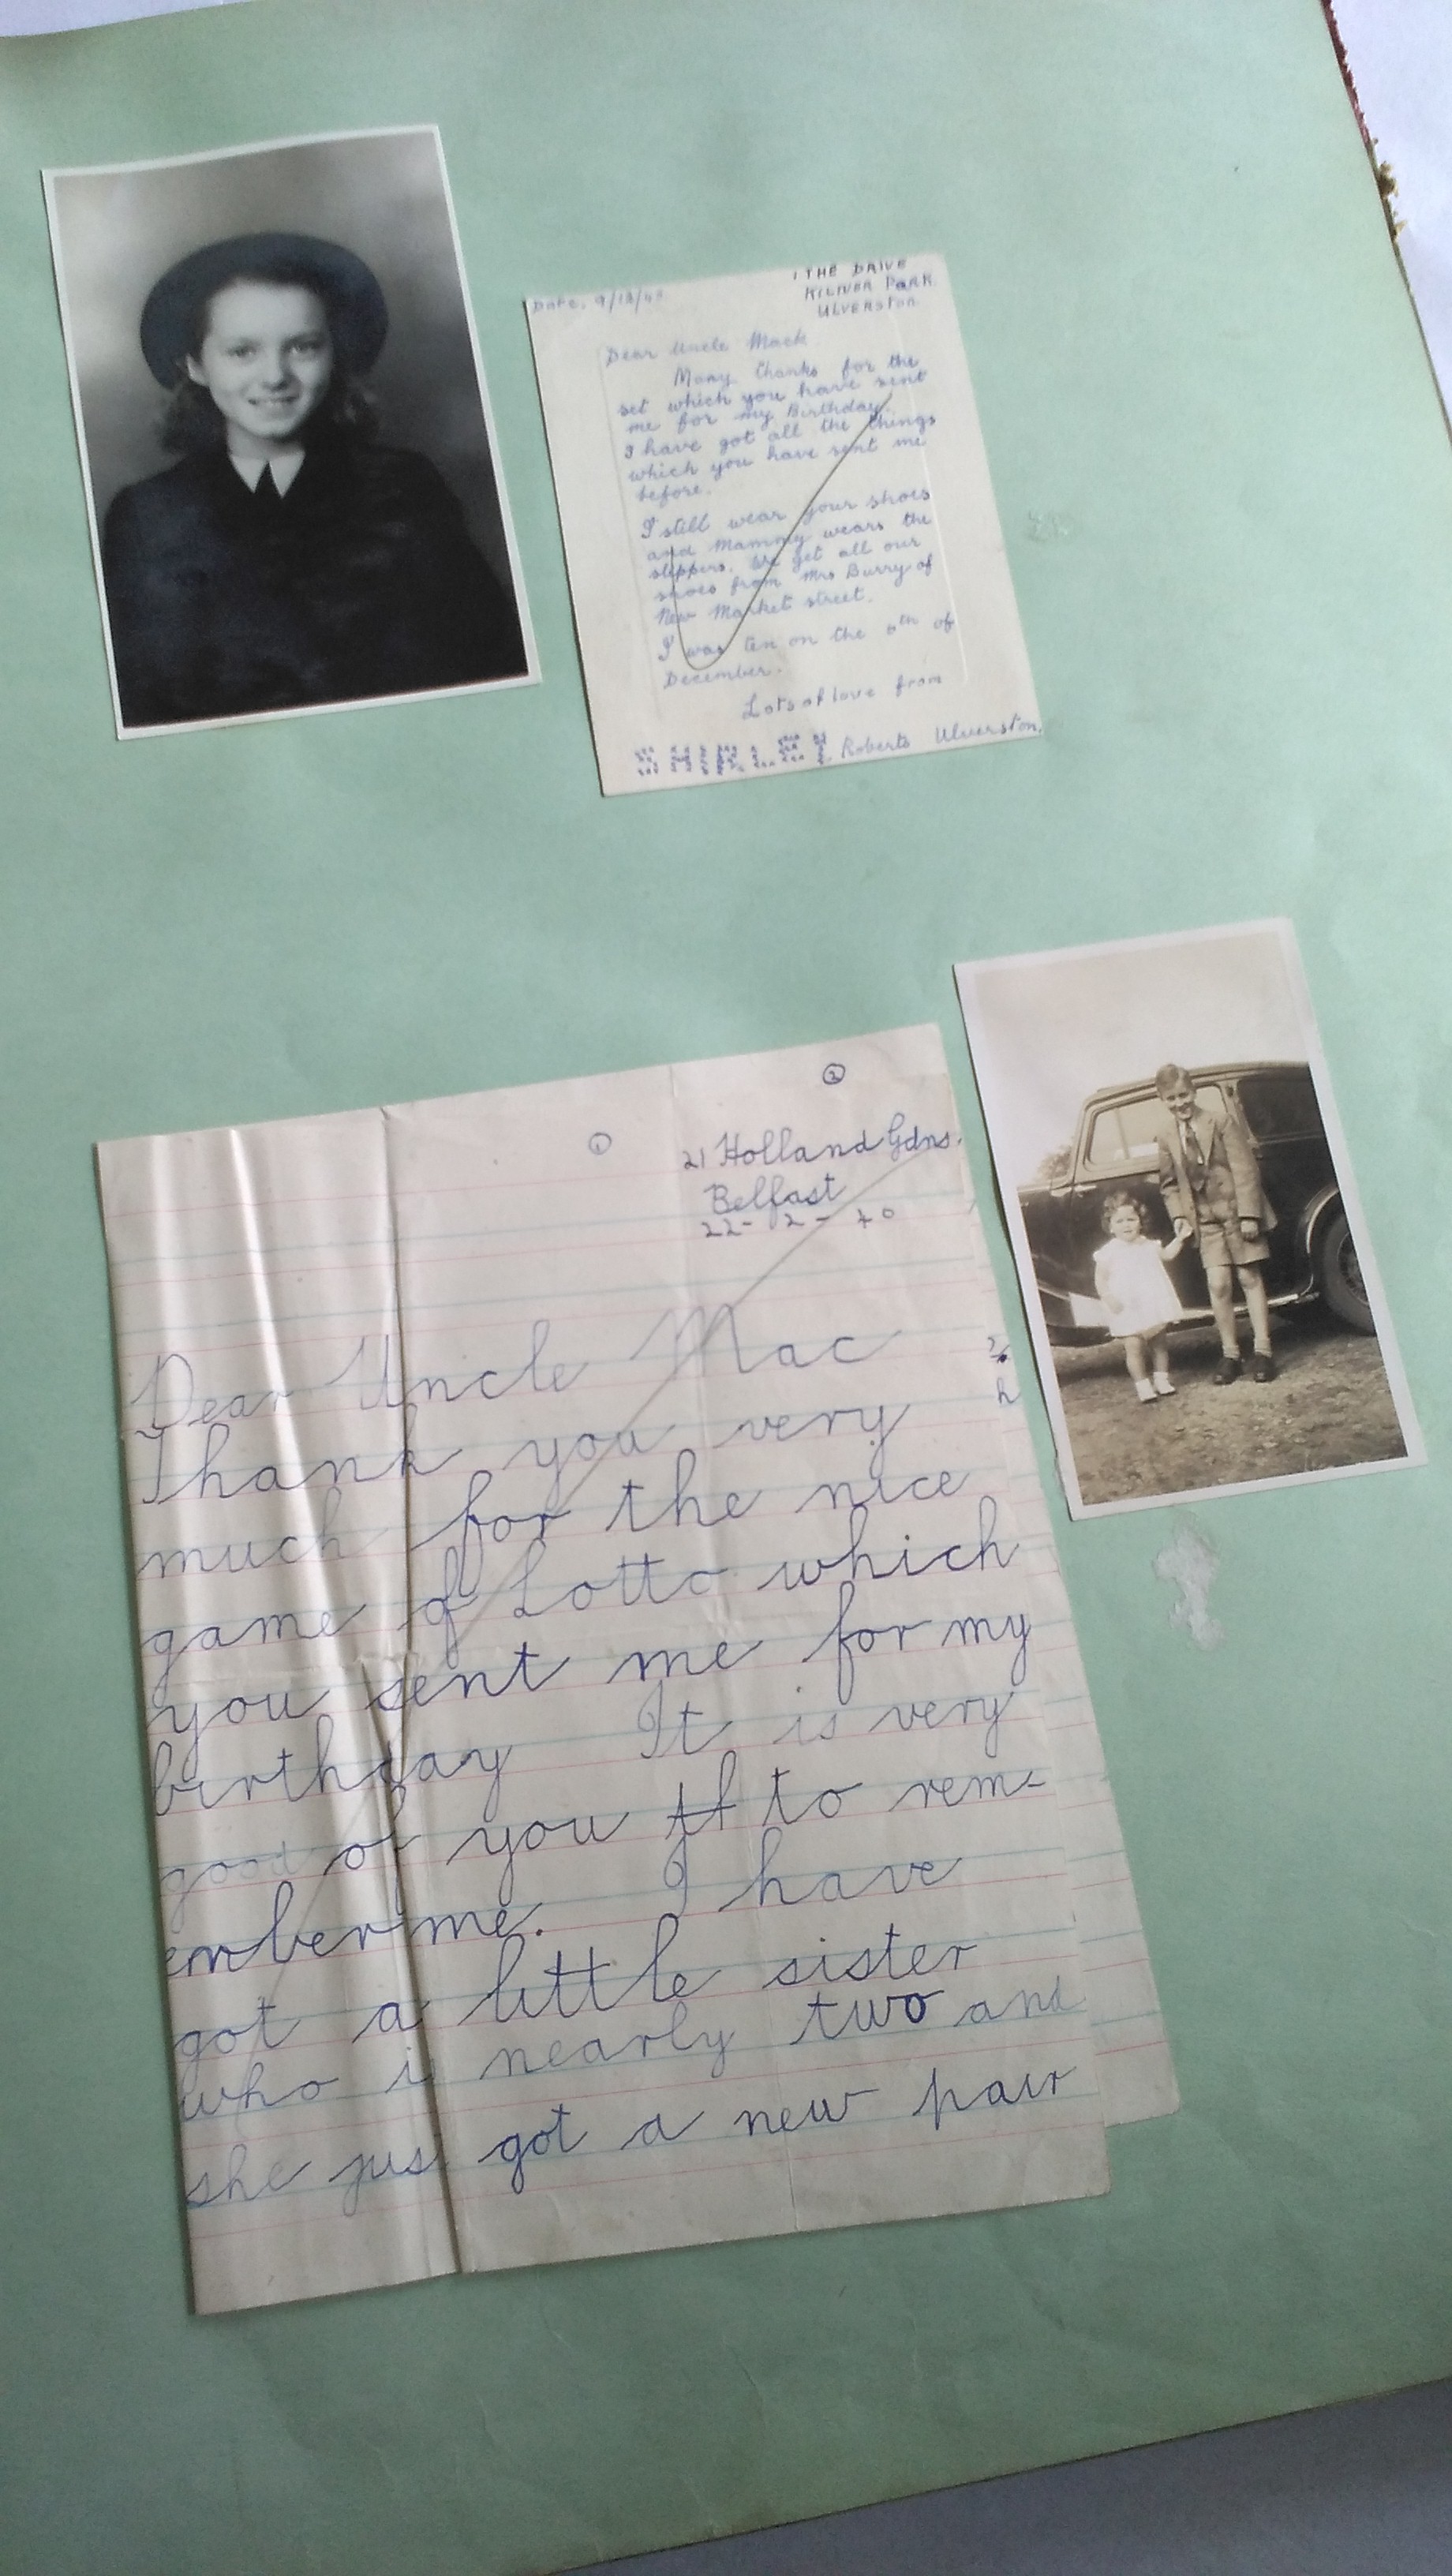 Date. 9/12/40
1 THE DRIVE
KILNER PARK
ULVERSTON.
Dear Uncle Mack.
Many thanks for the
set which you have sent
me for my Birthday.
I have got all the things
which you have sent me
before.
I still wear your shoes
and Mammy wears the
slippers. We get all our
shoes from Mrs Burry of
New Market street.
I was ten on the of
December.
Lots of love from
SHIRLEY Roberts Ulverston.
① ②
21 Holland Gdns.
Belfast
22- 2 - 40
Dear Uncle Mac
Thank you very
much for the nice
game of Lotto which
you sent me for my
birthday It is very
good of you to rem-
ember me. I have
got a little sister
who is nearly two and
she just got a new pair